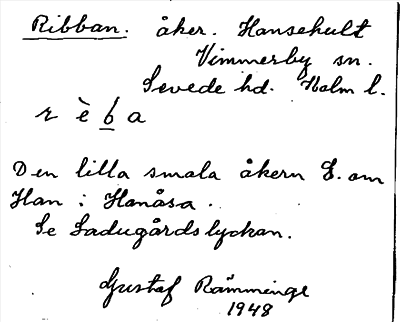 Ribban. åker. Hansehult
Vimmerby sn.
Sevede hd. Kalm l.
r è b a
Den lilla smala åkern S. om
Han i Hanåsa.
Se Ladugårdslyckan.
Gustaf Rämminge
1948